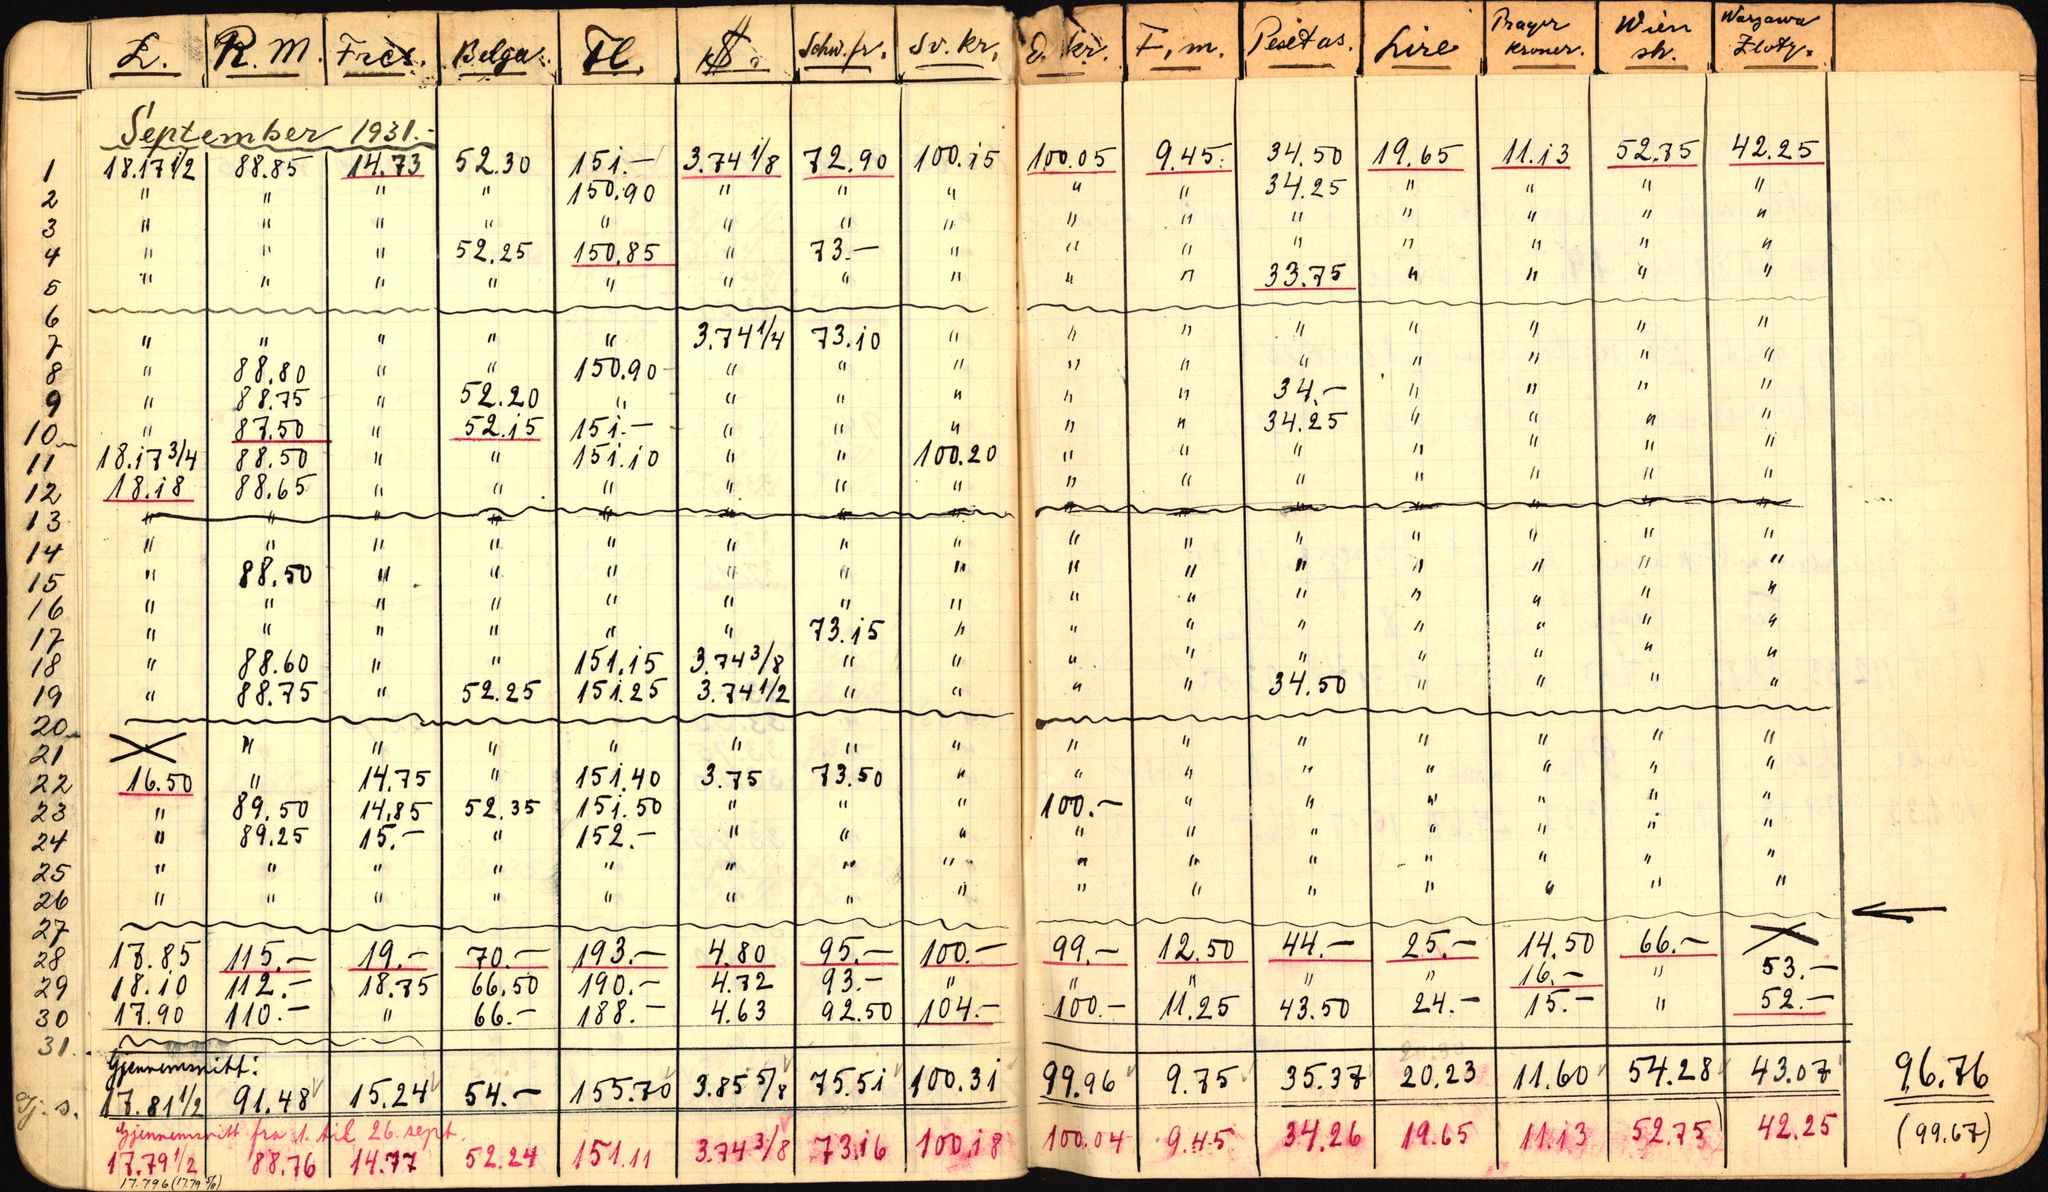 £. R.M. Frcs. Belga. Fl. $. Schw.fr. Sv. kr. D. kr. F. m. Pesetas. Lire Prager kroner. Wien sh. Warzawa Zloty.
September 1931.-
1 18.17 1/2 88.85 14.73 52.30 151.- 3.74 1/8 72.90 100.15 100.05 9.45. 34.50 19.65 11.13 52.75 42.25
2 " " " " 150.90 " " " " " 34.25 " " " "
3 " " " " " " " " " " " " " " "
4 " " " 52.25 150.85 " 73.- " " " " " " " "
5 " " " " " " " " " " 33.75 " " " "
6
7 " " " " " 3.74 1/4 73.10 " " " " " " " "
8 " 88.80 " " 150.90 " " " " " " " " " "
9 " 88.75 " 52.20 " " " " " " 34.- " " " "
10 " 87.50 " 52.15 151.- " " " " " 34.25 " " " "
11 18.17 3/4 88.50 " " 151.10 " " 100.20 " " " " " " "
12 18.18 88.65 " " " " " " " " " " " " "
13 " " " " " " " " " " " " " " "
14 " " " " " " " " " " " " " " "
15 " 88.50 " " " " " " " " " " " " "
16 " " " " " " " " " " " " " " "
17 " " " " " " 73.15 " " " " " " " "
18 " 88.60 " " 151.15 3.74 3/8 " " " " " " " " "
19 " 88.75 " 52.25 151.25 3.74 1/2 " " " " 34.50 " " " "
20
21 " " " " " " " " " " " " " "
22 16.50 " 14.75 " 151.40 3.75 73.50 " " " " " " " "
23 " 89.50 14.85 52.35 151.50 " " " 100.- " " " " " "
24 " 89.25 15.- " 152.- " " " " " " " " " "
25 " " " " " " " " " " " " " " "
26 " " " " " " " " " " " " " " "
27
28 17.85 115.- 19.- 70.- 193.- 4.80 95.- 100.- 99.- 12.50 44.- 25.- 14.50 66.-
29 18.10 112.- 18.75 66.50 190.- 4.72 93.- " " " " " 16.- " 53.-
30 17.90 110.- " 66.- 188.- 4.63 92.50 104.- 100.- 11.25 43.50 24.- 15.- " 52.-
31.
Gjennemsnitt:
Gj. s. 17.81 1/2 91.48 15.24 54.- 155.70 3.85 5/8 75.51 100.31 99.96 9.75 35.37 20.23 11.60 54.28 43.07 96.76
Gjennemsnitt fra 1. til 26. sept.
17.79 1/2 88.76 14.77 52.24 151.11 3.74 3/8 73.16 100.18 100.04 9.45 34.26 19.65 11.13 52.75 42.25 (99.67)
17.796 (17.79 5/8)